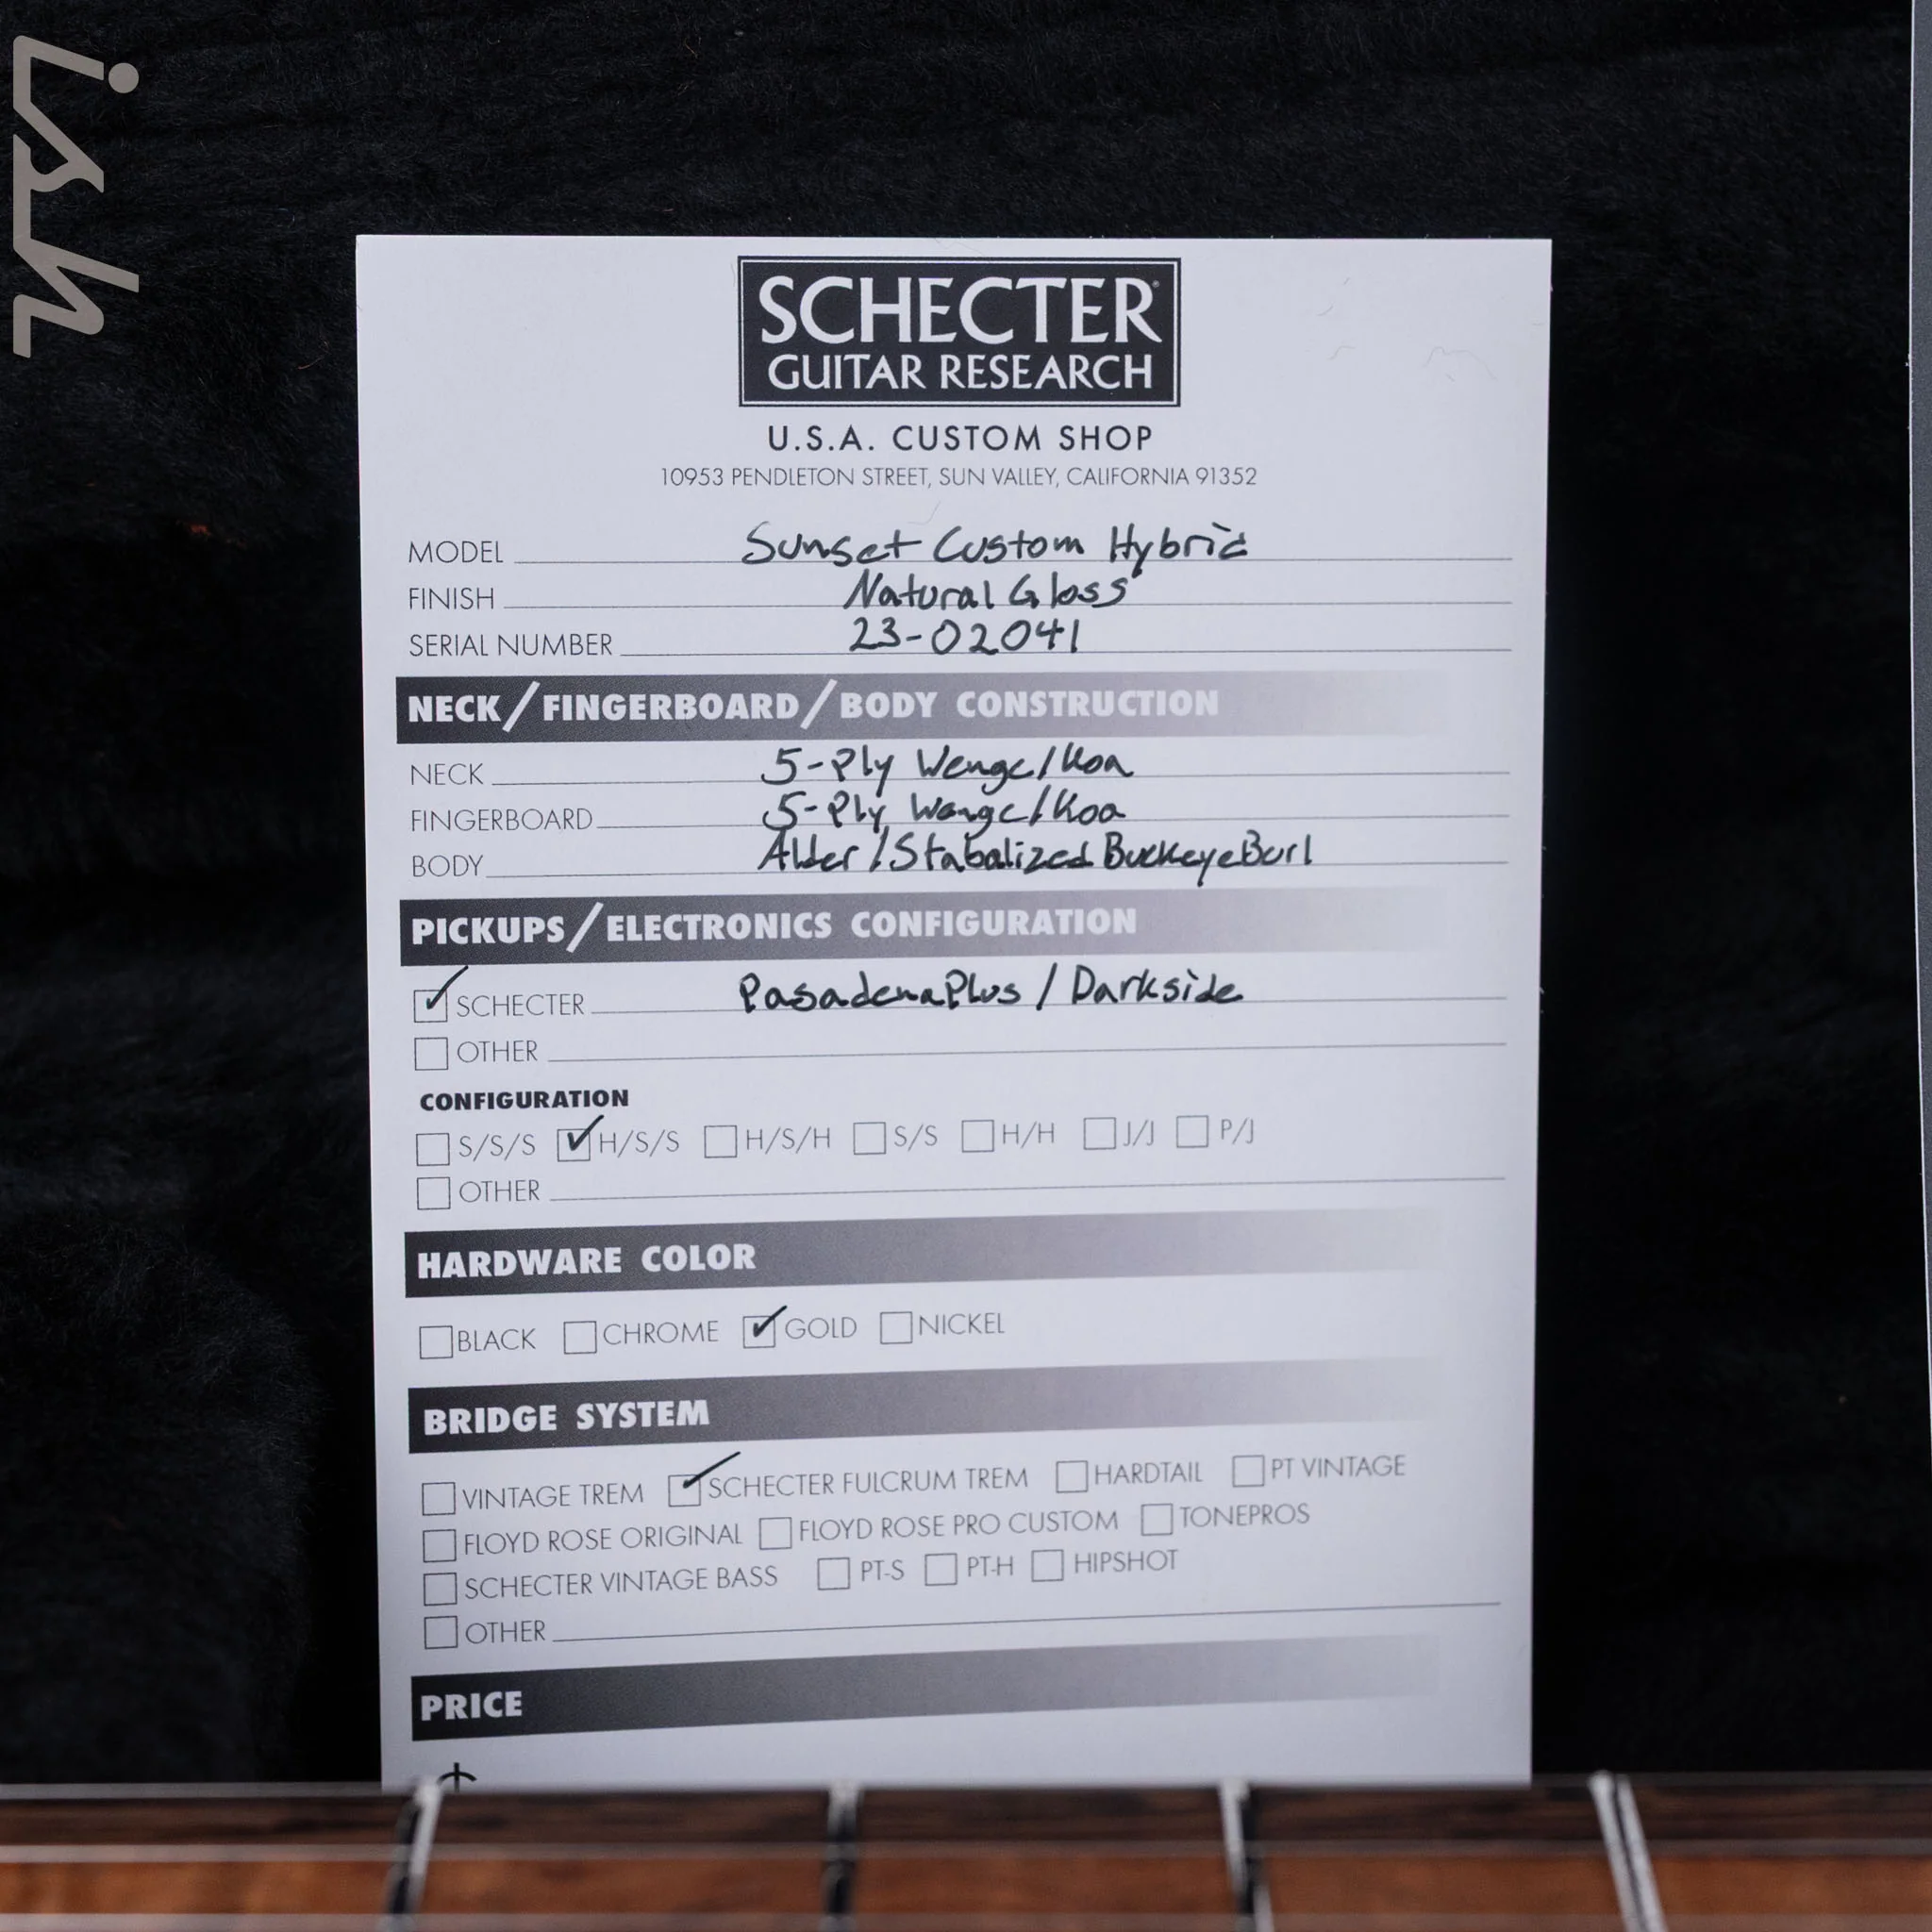 ish
SCHECTER®
GUITAR RESEARCH
U.S.A. CUSTOM SHOP
10953 PENDLETON STREET, SUN VALLEY, CALIFORNIA 91352
MODEL Sunset Custom Hybrid
FINISH Natural Gloss
SERIAL NUMBER 23-02041
NECK/FINGERBOARD/BODY CONSTRUCTION
NECK 5-Ply Wenge/Koa
FINGERBOARD 5-Ply Wenge/Koa
BODY Alder/Stabalized Buckeye Burl
PICKUPS/ELECTRONICS CONFIGURATION
SCHECTER PasadenaPlus / Darkside
OTHER
CONFIGURATION
S/S/S H/S/S H/S/H S/S H/H J/J P/J
OTHER
HARDWARE COLOR
BLACK CHROME GOLD NICKEL
BRIDGE SYSTEM
VINTAGE TREM SCHECTER FULCRUM TREM HARDTAIL PT VINTAGE
FLOYD ROSE ORIGINAL FLOYD ROSE PRO CUSTOM TONEPROS
SCHECTER VINTAGE BASS PT-S PT-H HIPSHOT
OTHER
PRICE
$